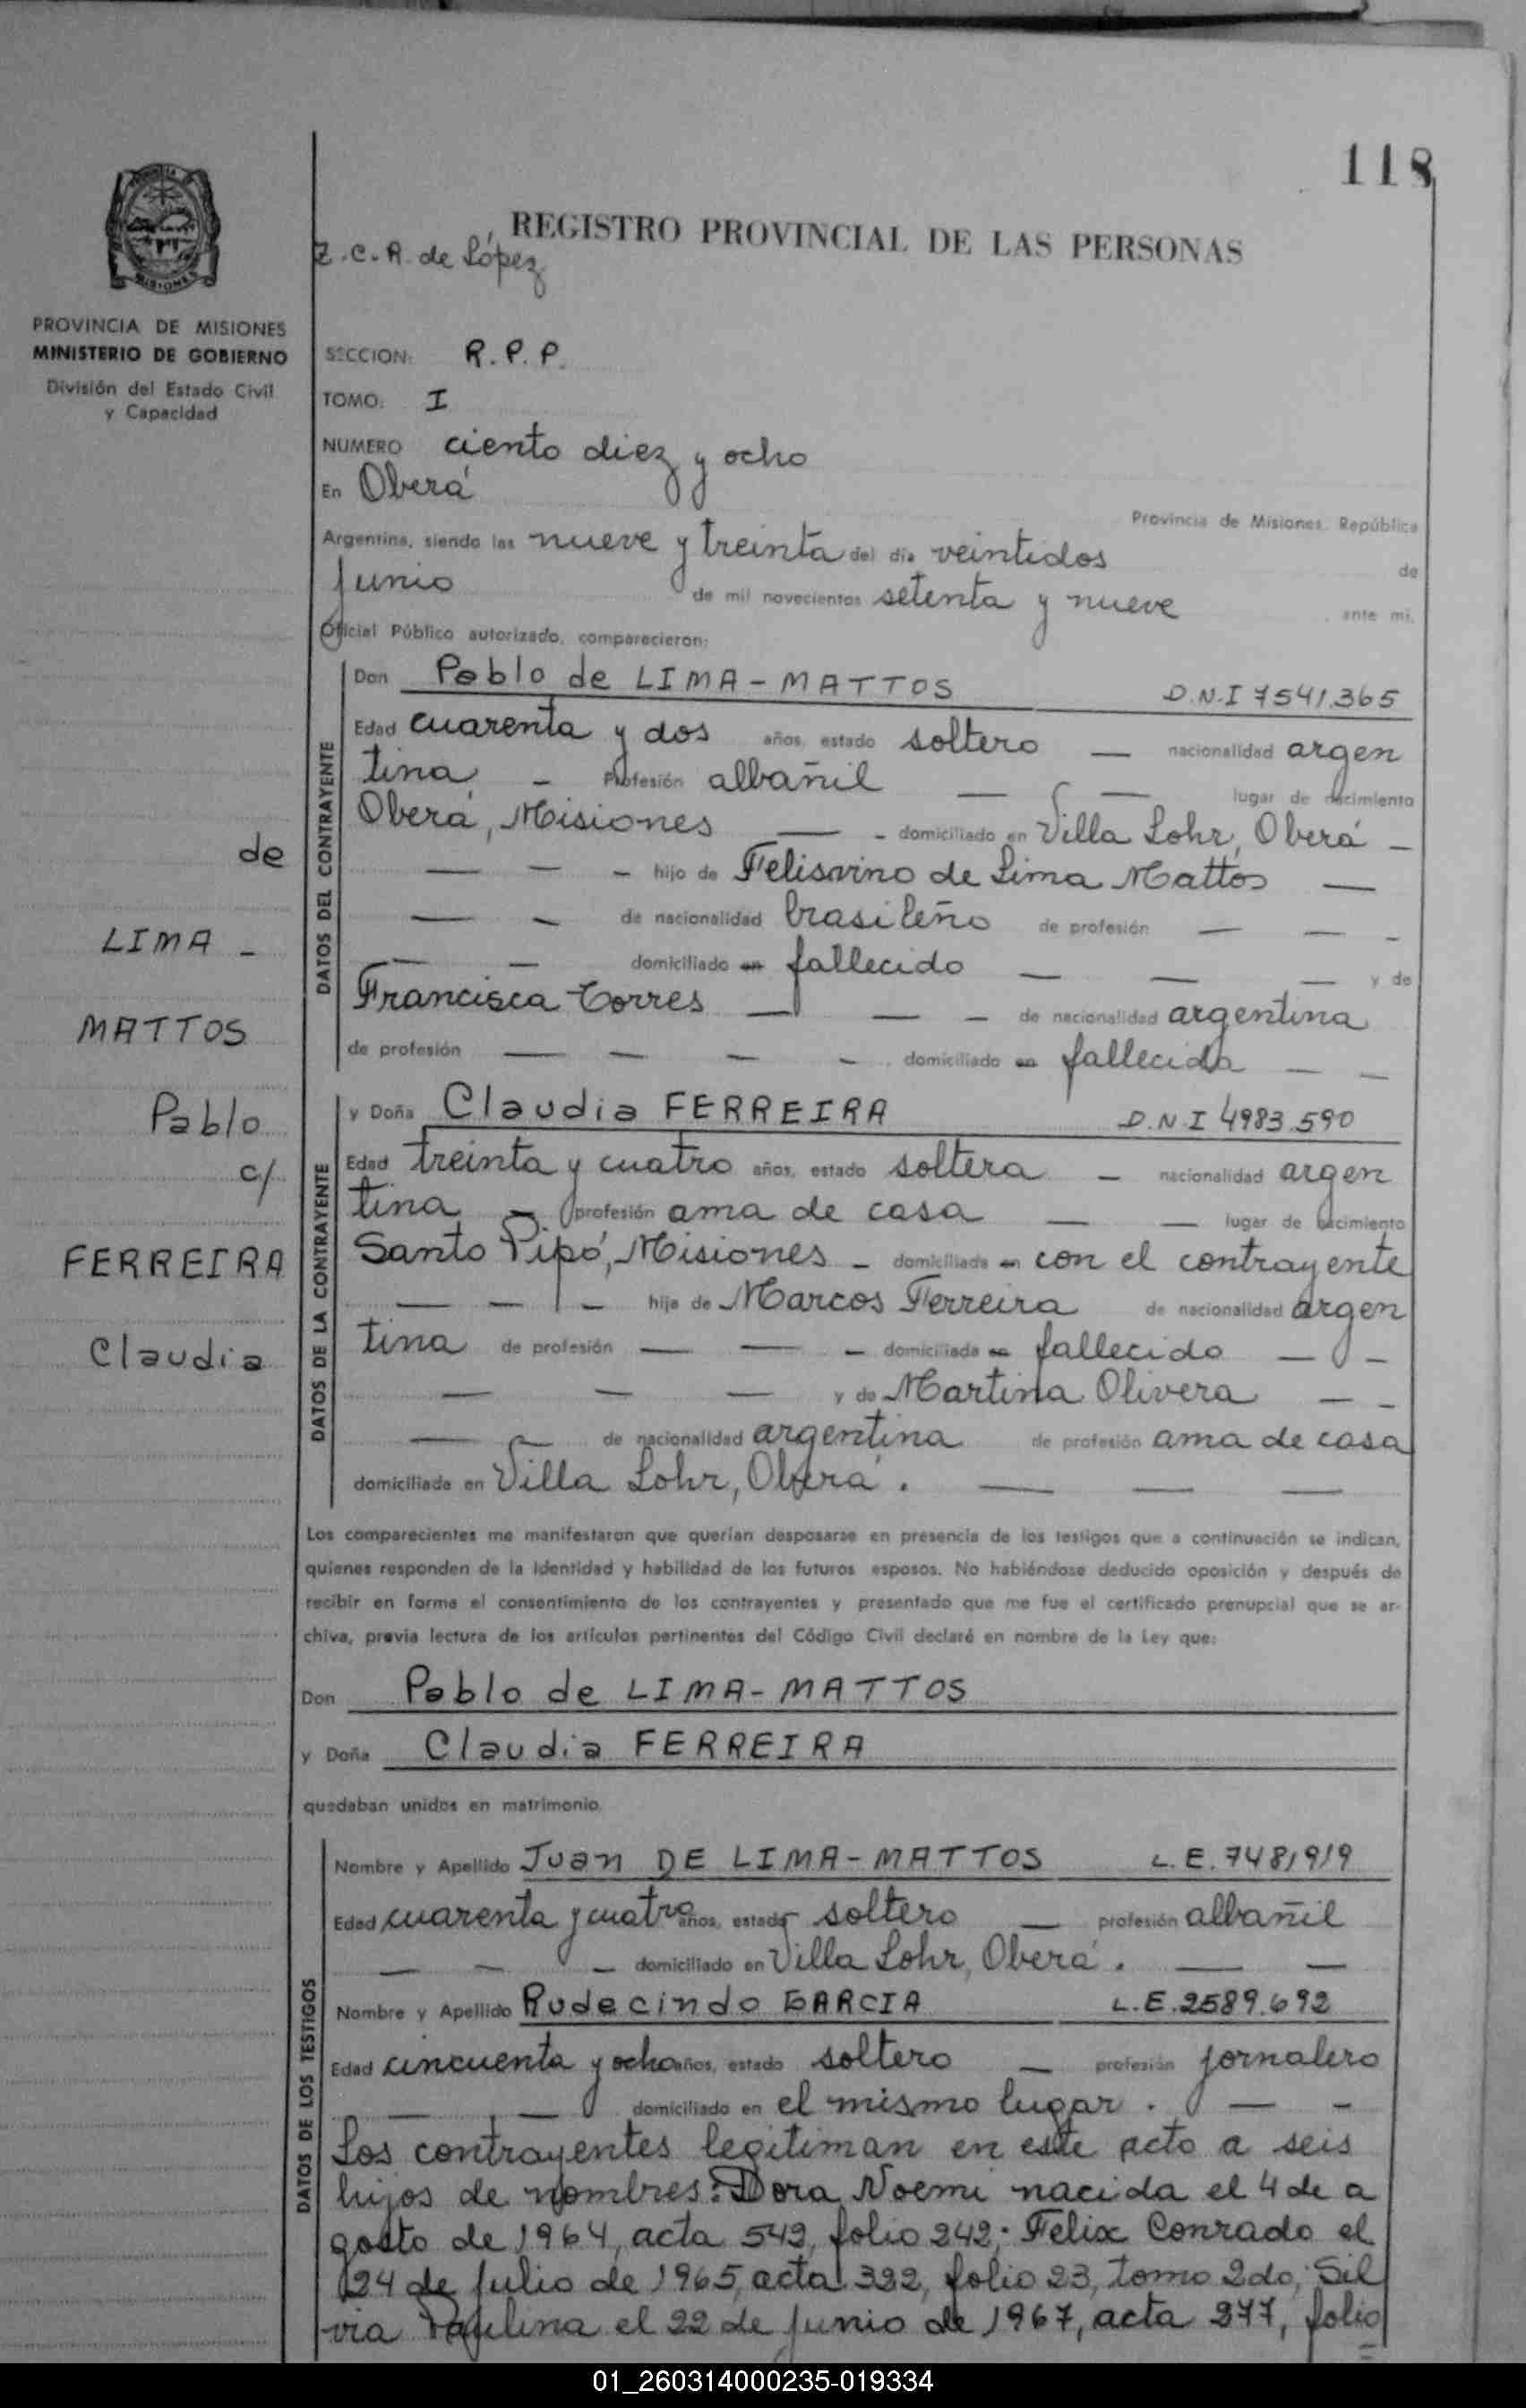 118
REGISTRO PROVINCIAL DE LAS PERSONAS
Z.C.R. de López
PROVINCIA DE MISIONES
MINISTERIO DE GOBIERNO
División del Estado Civil
y Capacidad
SECCION: R.P.P.
TOMO: I
NUMERO ciento diez y ocho
En Oberá
Provincia de Misiones, República
Argentina, siendo las nueve y treinta del día veintidos de
Junio de mil novecientos setenta y nueve ante mi,
Oficial Público autorizado, comparecieron:
DATOS DEL CONTRAYENTE
Don Pablo de LIMA-MATTOS D.N.I 7541.365
Edad cuarenta y dos años, estado soltero — nacionalidad argen
tina - Profesión albañil — — lugar de nacimiento
Oberá, Misiones — - domiciliado en Villa Lohr, Oberá -
— — - hijo de Felisvino de Lima Mattos —
— - de nacionalidad brasileño de profesión — — -
— - domiciliado en fallecido — — — y de
Francisca Torres — — - de nacionalidad argentina
de profesión — — - - domiciliado en fallecida — —
de
LIMA -
MATTOS
Pablo
c/
FERREIRA
Claudia
DATOS DE LA CONTRAYENTE
y Doña Claudia FERREIRA D.N.I 4983.590
Edad treinta y cuatro años, estado soltera - nacionalidad argen
tina - profesión ama de casa — — lugar de nacimiento
Santo Pipó, Misiones - domiciliada en con el contrayente
— — - hija de Marcos Ferreira de nacionalidad argen
tina de profesión — — - domiciliado en fallecido — -
— — — y de Martina Olivera — -
— - de nacionalidad argentina de profesión ama de casa
domiciliada en Villa Lohr, Oberá. — — —
Los comparecientes me manifestaron que querían desposarse en presencia de los testigos que a continuación se indican,
quienes responden de la identidad y habilidad de los futuros esposos. No habiéndose deducido oposición y después de
recibir en forma el consentimiento de los contrayentes y presentado que me fue el certificado prenupcial que se ar-
chiva, previa lectura de los artículos pertinentes del Código Civil declaré en nombre de la Ley que:
Don Pablo de LIMA-MATTOS
y Doña Claudia FERREIRA
quedaban unidos en matrimonio.
DATOS DE LOS TESTIGOS
Nombre y Apellido Juan DE LIMA-MATTOS L.E. 7481919
Edad cuarenta y cuatro años, estado soltero — profesión albañil
— - - domiciliado en Villa Lohr, Oberá. — —
Nombre y Apellido Rudecindo GARCIA L.E. 2589.692
Edad cincuenta y ocho años, estado soltero — profesión jornalero
— — domiciliado en el mismo lugar. — -
Los contrayentes legitiman en este acto a seis
hijos de nombres: Dora Noemi nacida el 4 de a
gosto de 1964, acta 542, folio 242; Felix Conrado el
24 de Julio de 1965, acta 322, folio 23, tomo 2do; Sil
via Paulina el 22 de Junio de 1967, acta 277, folio
01_260314000235-019334